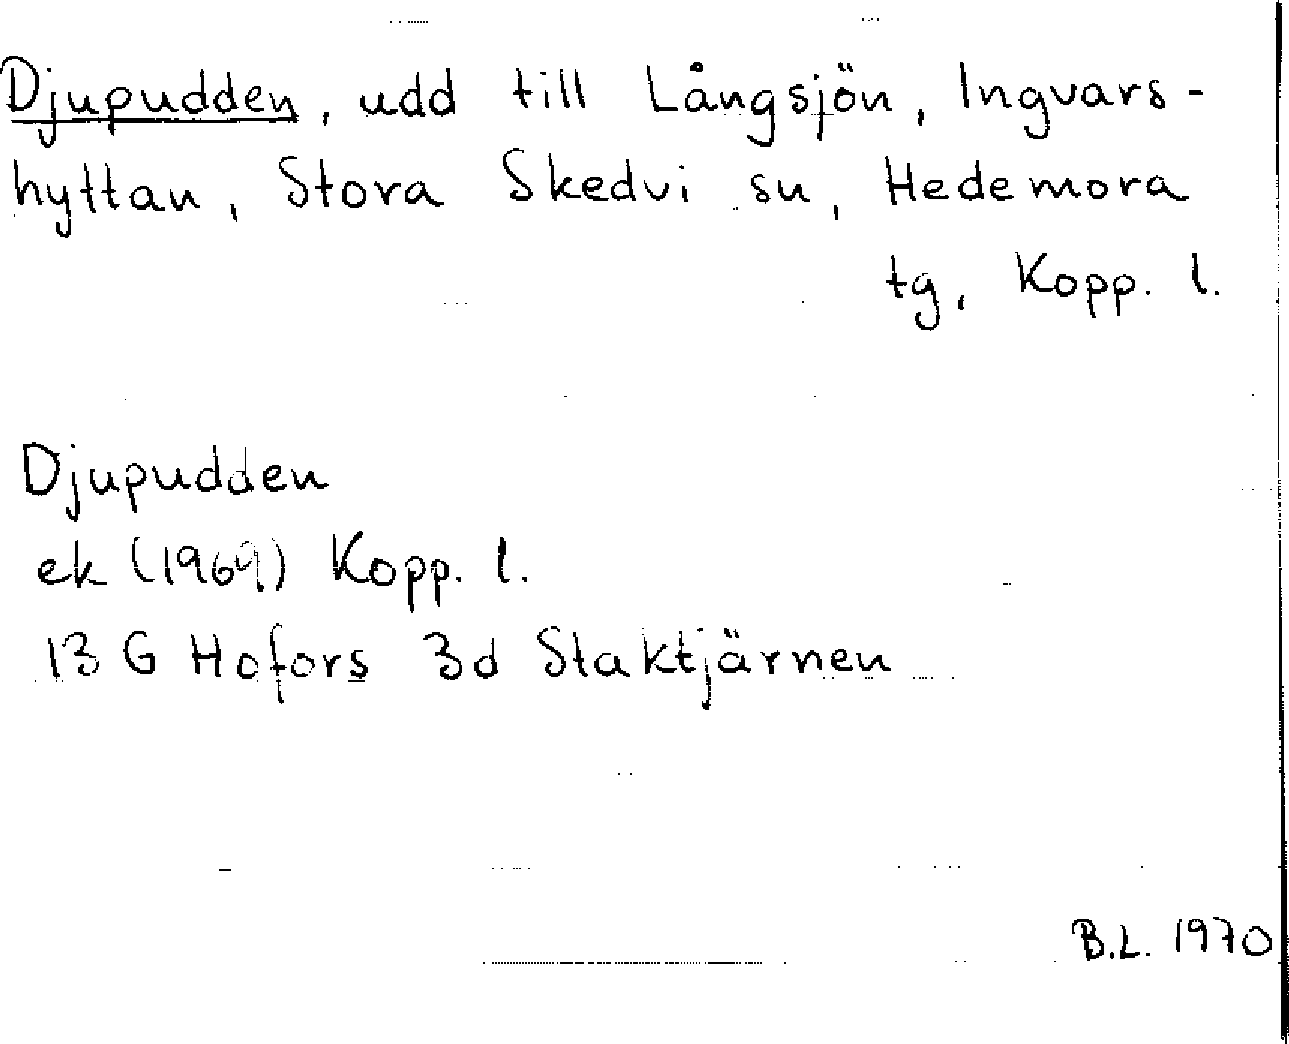 Djupudden, udd till Långsjön, Ingvars-
hyttan, Stora Skedvi sn, Hedemora
tg, Kopp. l.
Djupudden
ek (1969) Kopp. l.
13 G Hofors 3d Staktjärnen
B.L. 1970